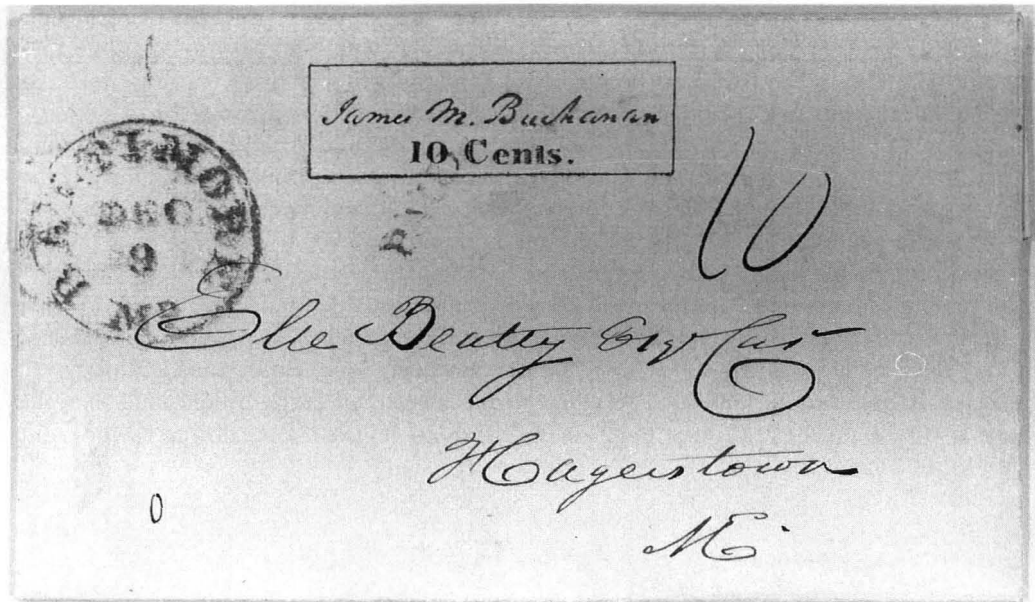 James M. Buchanan
10 Cents.
BALTIMORE
DEC
9
MD
10
Elie Beatty Esqr Cas
Hagerstown
Md